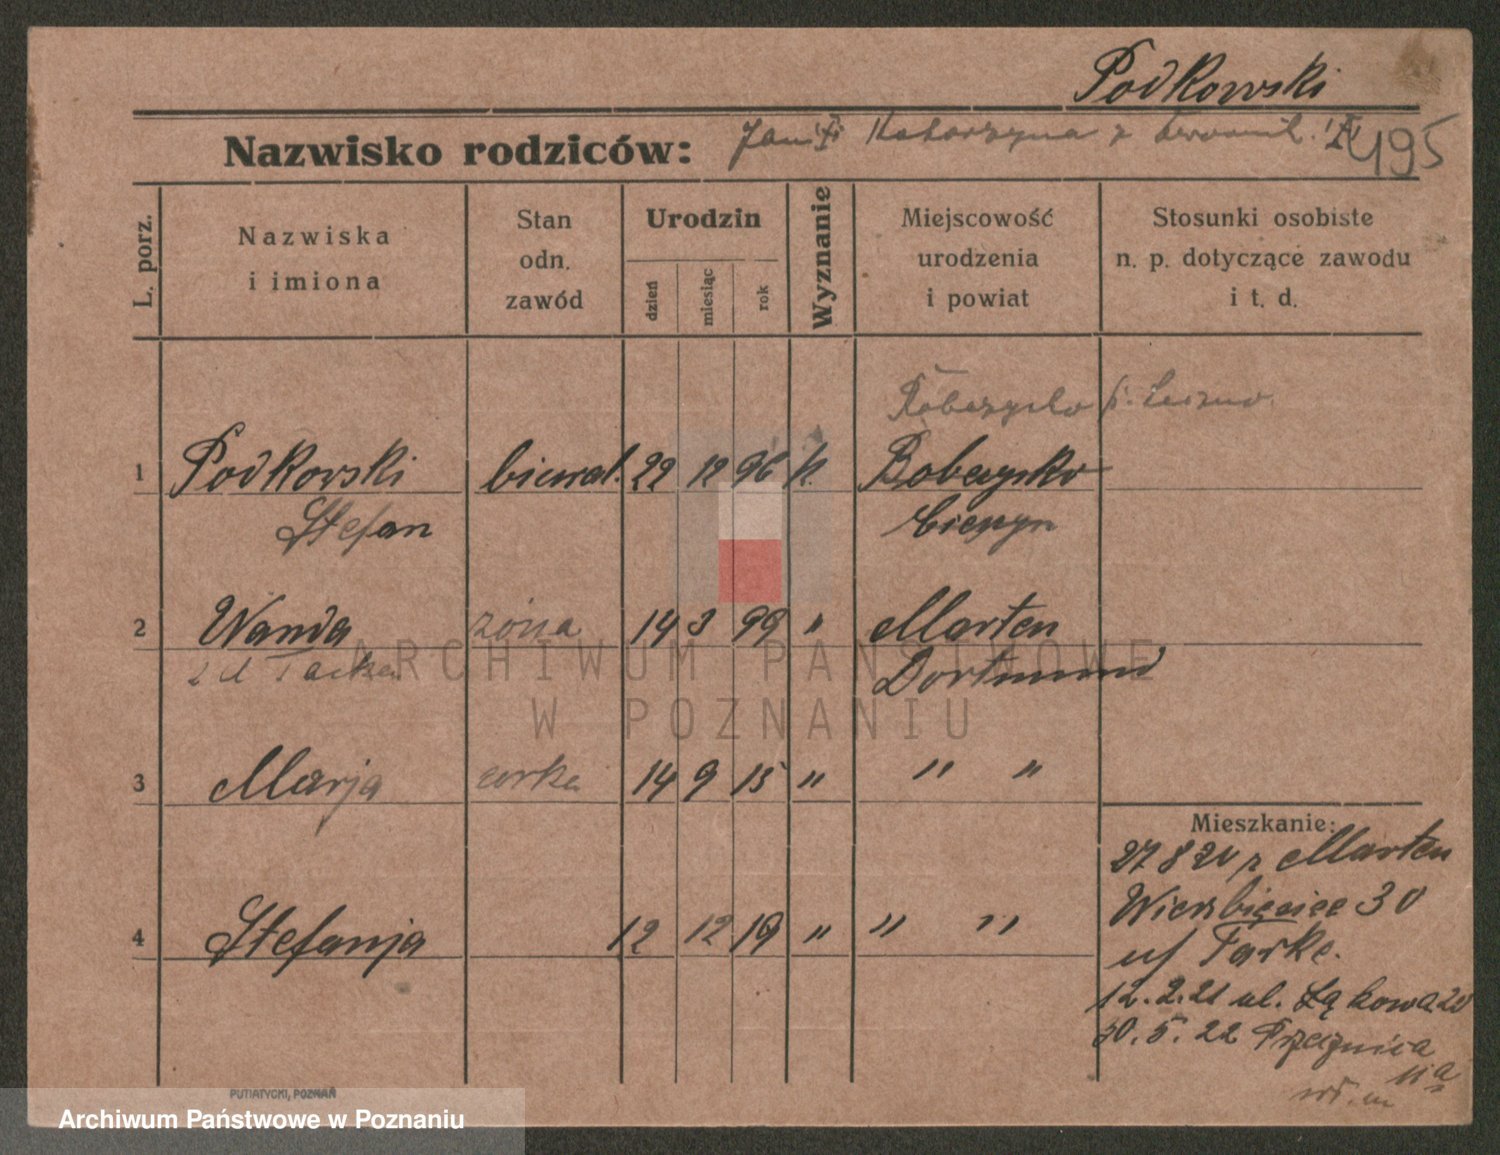 Podkowski
Nazwisko rodziców: Jan i Katarzyna z 495
L. porz.
Nazwiska i imiona
Stan odn. zawód
Urodzin
dzień
miesiąc
rok
Wyznanie
Miejscowość urodzenia i powiat
Stosunki osobiste n. p. dotyczące zawodu i t. d.
1 Podkowski 22 12 96 k.
Stefan
2 Wanda żona 14 3 99 " Marten
Dortmund
3 Marja córka 14 9 15 " " "
4 Stefanja 12 12 19 " " "
Mieszkanie:
27 8 20 z Marten
Wierzbięcice 30
12.2.21 ul. Łąkowa 20
30.5.22 Przecznica
11a
PUTIATYCKI, POZNAŃ
ARCHIWUM PAŃSTWOWE
W POZNANIU
Archiwum Państwowe w Poznaniu